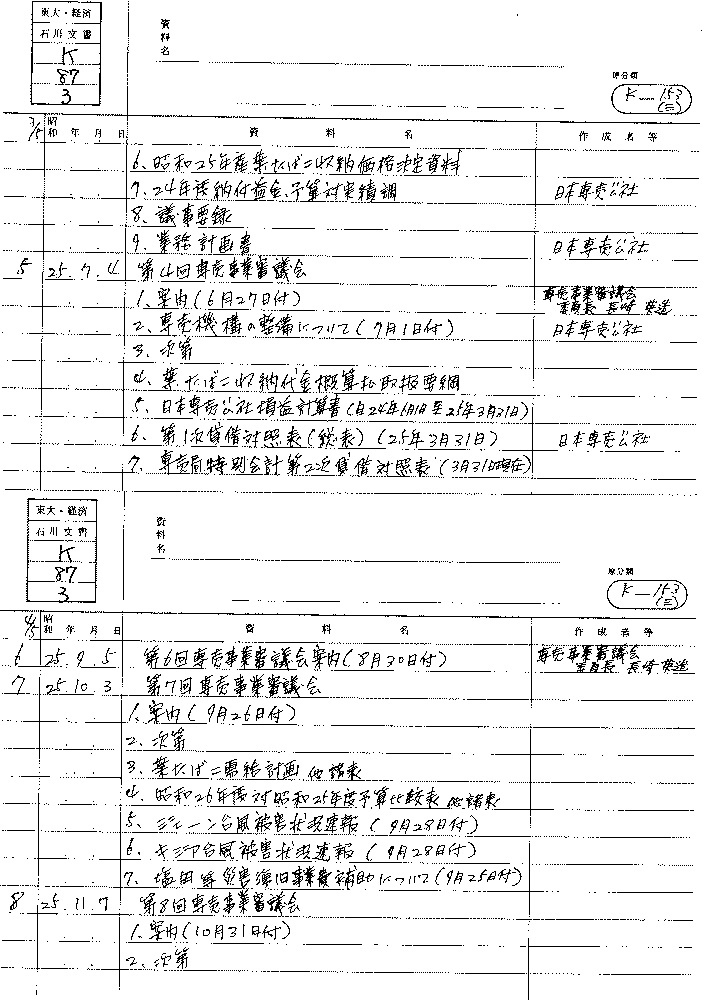 東大・経済
石川文書
K
87
3
資料名
原分類
K-153
(三)
3/5
昭和 年 月 日 資 料 名 作成者名等
6. 昭和25年産葉たばこ収納価格決定資料
7. 24年度納付益金、予算対実績調 日本専売公社
8. 議事要録
9. 業務計画書 日本専売公社
5 25. 7. 4 第4回専売事業審議会
1. 案内(6月27日付) 専売事業審議会
委員長 長崎 英造
2. 専売機構の整備について(7月1日付) 日本専売公社
3. 次第
4. 葉たばこ収納代金概算払取扱要綱
5. 日本専売公社損益計算書(自24年6月1日至25年3月31日)
6. 第1次貸借対照表(総表)(25年3月31日) 日本専売公社
7. 専売局特別会計第2次貸借対照表(3月31日現在)
東大・経済
石川文書
K
87
3
資料名
原分類
K-153
(三)
4/5
昭和 年 月 日 資 料 名 作成者名等
6 25. 9. 5 第6回専売事業審議会案内(8月30日付) 専売事業審議会
委員長 長崎 英造
7 25. 10. 3 第7回専売事業審議会
1. 案内(9月26日付)
2. 次第
3. 葉たばこ需給計画 他諸表
4. 昭和26年度対昭和25年度予算比較表 他諸表
5. ジェーン台風被害状況速報(9月28日付)
6. キジヤ台風被害状況速報(9月28日付)
7. 塩田等災害復旧事業費補助について(9月25日付)
8 25. 11. 7 第8回専売事業審議会
1. 案内(10月31日付)
2. 次第